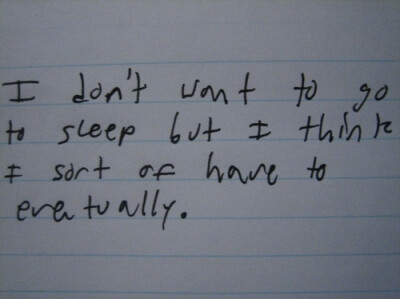 I don't want to go
to sleep but I think
I sort of have to
eventually.